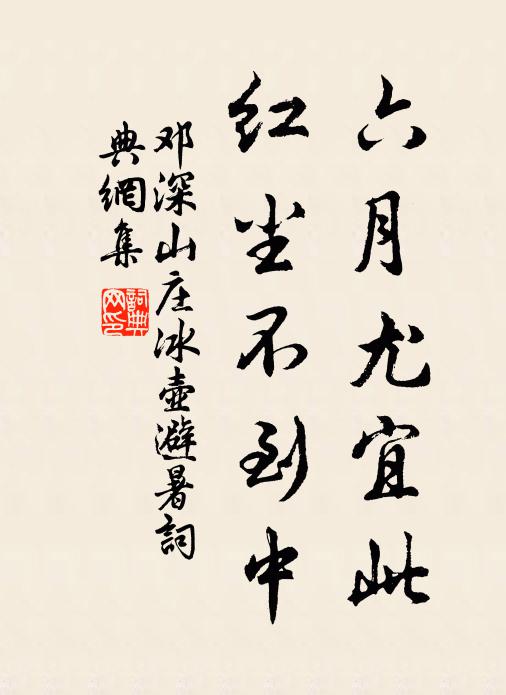 六月尤宜此
红尘不到中
邓深山庄冰壶避暑詞
典網集
詞典網印